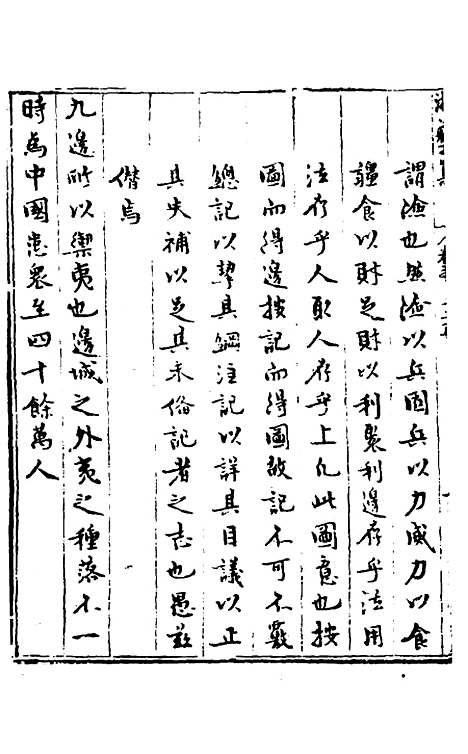 謂險也然險以兵固兵以力威力以食
疆食以財足財以利聚利邊存乎法用
法存乎人取人存乎上凢此圖意也按
圖而得邊按記而得圖故記不可不覈
總記以挈其綱注記以詳其目議以正
其失補以足其未俻記者之志也愚玆
僣焉
九邊所以禦夷也邊城之外夷之種落不一
時為中國患衆至四十餘萬人